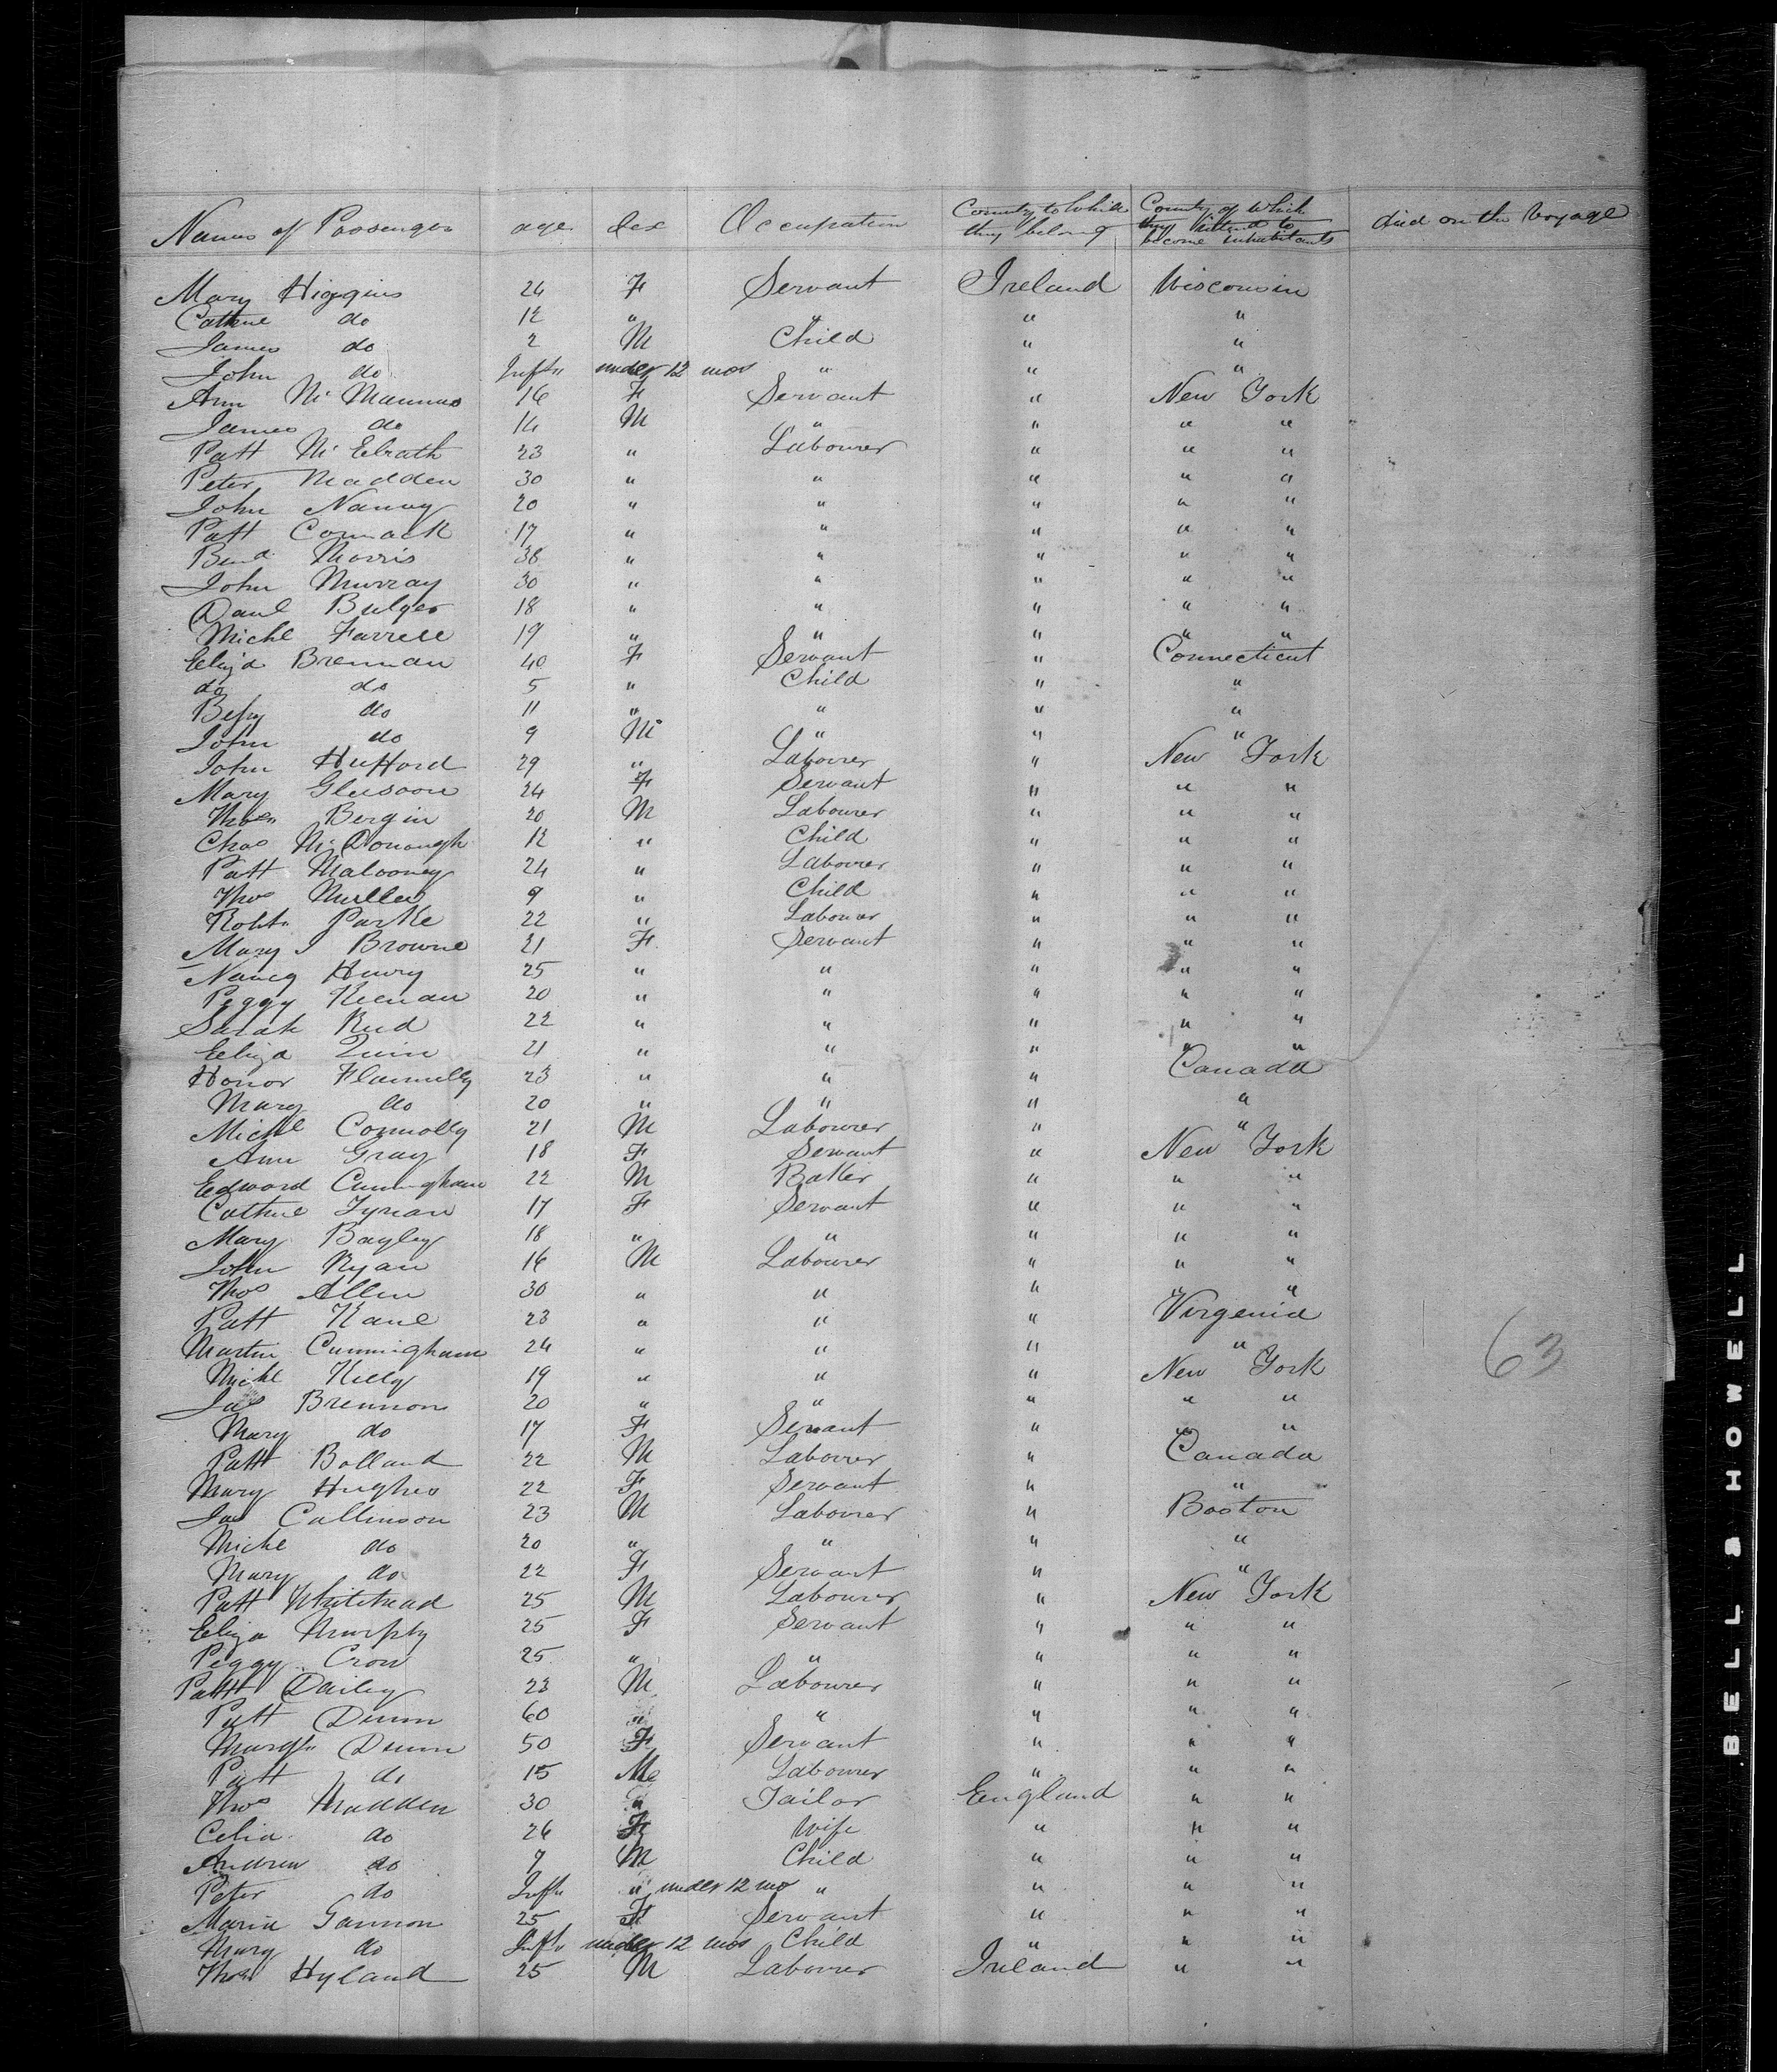 Names of Passenger age Sex Occupation County to Which they belong County of Which they intend to become inhabitants died on the Voyage
Mary Higgins 24 F Servant Ireland Wisconsin
Cathne do 12 " " " "
James do 2 M Child " "
John do Inft under 12 mos " " "
Ann McMannus 16 F Servant " New York
James do 14 M " " " "
Patt McElrath 23 " Labourer " " "
Peter Madden 30 " " " " "
John Nanny 20 " " " " "
Patt Comack 17 " " " " "
Bend Morris 38 " " " " "
John Murray 30 " " " " "
Danl Bulger 18 " " " " "
Michl Farrell 19 " " " " "
Eliza Brennan 40 F Servant " Connecticut
do do 5 " Child " "
Bessy do 11 " " " "
John do 9 M " " "
John Hufford 29 " Labourer " New York
Mary Gleesoon 24 F Servant " " "
Thos Bergin 20 M Labourer " " "
Chas McDonough 12 " Child " " "
Patt Malooney 24 " Labourer " " "
Thos Mullen 9 " Child " " "
Robt Parke 22 " Labourer " " "
Mary J Browne 21 F Servant " " "
Nancy Henry 25 " " " " "
Peggy Keenan 20 " " " " "
Sarah Reid 22 " " " " "
Eliza Quin 21 " " " " "
Honor Flannelly 23 " " " Canada
Mary do 20 " " " "
Michl Connolly 21 M Labourer " "
Ann Gray 18 F Servant " New York
Edward Cunningham 22 M Baker " " "
Cathne Tynan 17 F Servant " " "
Mary Bayley 18 " " " " "
John Ryan 16 M Labourer " " "
Thos Allen 30 " " " " "
Patt Kane 23 " " " Virgenia
Martin Cunningham 24 " " " "
Michl Kelly 19 " " " New York
Jas Brennon 20 " " " " "
Mary do 17 F Servant " " "
Patt Bolland 22 M Labourer " Canada
Mary Hughes 22 F Servant " "
Jas Callinson 23 M Labourer " Boston
Michl do 20 " " " "
Mary do 22 F Servant " "
Patt Whitehead 25 M Labourer " New York
Eliza Murphy 25 F Servant " " "
Peggy Crow 25 " " " " "
Patt Dailey 23 M Labourer " " "
Patt Dunn 60 " " " " "
Margt Dunn 50 F Servant " " "
Patt do 15 M Labourer " " "
Thos Madden 30 " Tailor England " "
Celia do 26 F Wife " " "
Andrew do 7 M Child " " "
Peter do Inft " under 12 mo " " " "
Maria Gannon 25 F Servant " " "
Mary do Inft under 12 mos Child " " "
Thos Hyland 25 M Labourer Ireland " "
63
BELL & HOWELL